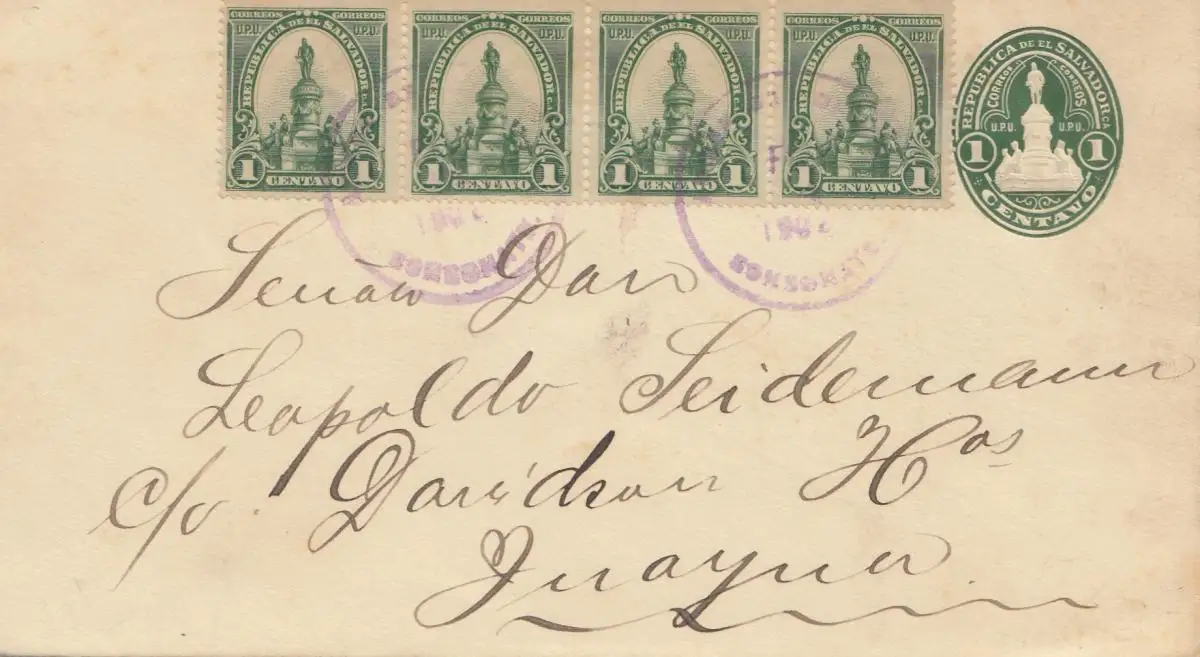 CORREOS CORREOS
U.P.U. U.P.U.
REPUBLICA DE EL SALVADOR C.A.
1 CENTAVO 1
CORREOS CORREOS
U.P.U. U.P.U.
REPUBLICA DE EL SALVADOR C.A.
1 CENTAVO 1
CORREOS CORREOS
U.P.U. U.P.U.
REPUBLICA DE EL SALVADOR C.A.
1 CENTAVO 1
CORREOS CORREOS
U.P.U. U.P.U.
REPUBLICA DE EL SALVADOR C.A.
1 CENTAVO 1
REPUBLICA DE EL SALVADOR C.A.
CORREOS CORREOS
U.P.U. U.P.U.
1 1
CENTAVO
SONSONATE
SONSONATE
Señor Don
Leopoldo Seidemann
c/o Davidson Hos
Juayua